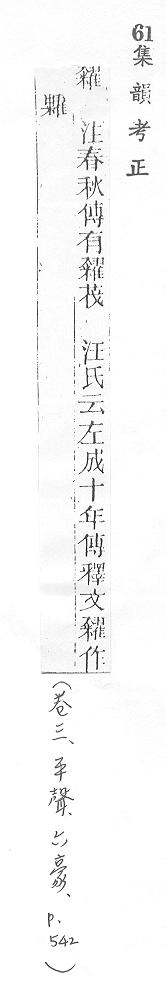 61 集韻考正
糴 注春秋傳有糴茷 汪氏云左成十年傳釋文糴作
(卷三、平聲、六豪、p.542)